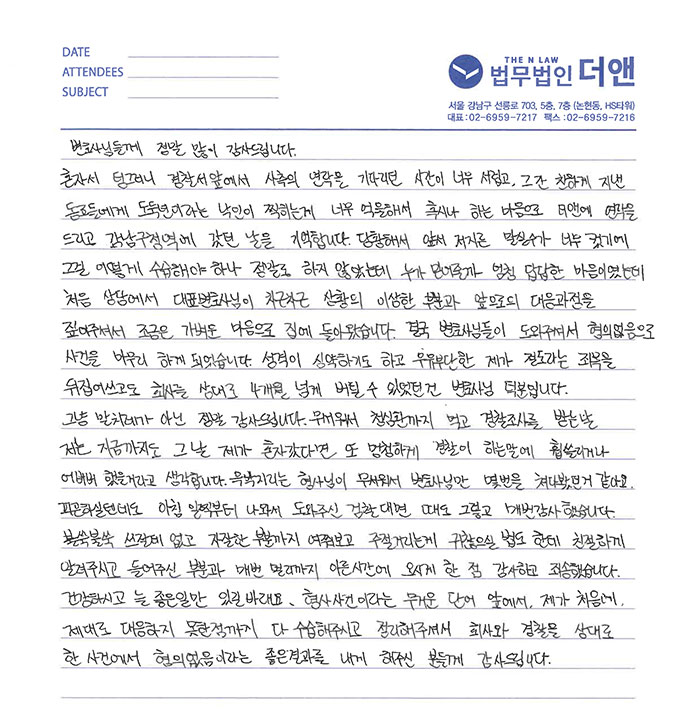 DATE
ATTENDEES
SUBJECT
THE N LAW
법무법인 더앤
서울 강남구 선릉로 703, 5층, 7층 (논현동, HS타워)
대표 : 02-6959-7217 팩스 : 02-6959-7216
변호사님들께 정말 많이 감사드립니다.
혼자서 덩그러니 경찰서앞에서 사측의 연락을 기다리던 시간이 너무 서럽고, 그간 친하게 지낸
동료들에게 도둑년이라는 낙인이 찍히는게 너무 억울해서 혹시나 하는 마음으로 더앤에 연락을
드리고 강남구청역에 갔던 날을 기억합니다. 당황해서 앞서 저지른 말실수가 너무 컸기에
그걸 어떻게 수습해야 하나 절말로 하지 않았는데 누가 믿어줄까 엄청 답답한 마음이였는데
처음 상담에서 대표변호사님이 차근차근 상황의 이상한 부분과 앞으로의 대응과정을
짚어주셔서 조금은 가벼운 마음으로 집에 돌아왔습니다. 결국 변호사님들이 도와주셔서 혐의없음으로
사건을 마무리 하게 되었습니다. 성격이 심약하기도 하고 우유부단한 제가 절도라는 죄목을
뒤집어쓰고도 회사를 상대로 4개월 넘게 버틸 수 있었던건 변호사님 덕분입니다.
그냥 말치레가 아닌 정말 감사드립니다. 무서워서 청심환까지 먹고 경찰조사를 받는날
저는 지금까지도 그날 제가 혼자갔다면 또 멍청하게 경찰이 하는말에 휩쓸리거나
어버버 했을거라고 생각합니다. 윽박지르는 형사님이 무서워서 변호사님만 몇번을 쳐다봤던거 같아요.
피곤하실텐데도 아침 일찍부터 나와서 도와주신 검찰 대면 때도 그렇고 매번감사했습니다.
불쑥불쑥 쓰잘데 없고 자잘한 부분까지 여쭤보고 주절거리는게 귀찮으실 법도 한데 친절하게
알려주시고 들어주신 부분과 매번 멀리까지 이른시간에 오시게 한 점 감사하고 죄송했습니다.
건강하시고 늘 좋은일만 있길 바래요. 형사사건이라는 무거운 단어 앞에서, 제가 처음에,
제대로 대응하지 못한점까지 다 수습해주시고 정리해주셔서 회사와 경찰을 상대로
한 사건에서 혐의없음이라는 좋은결과를 내게 해주신 분들께 감사드립니다.